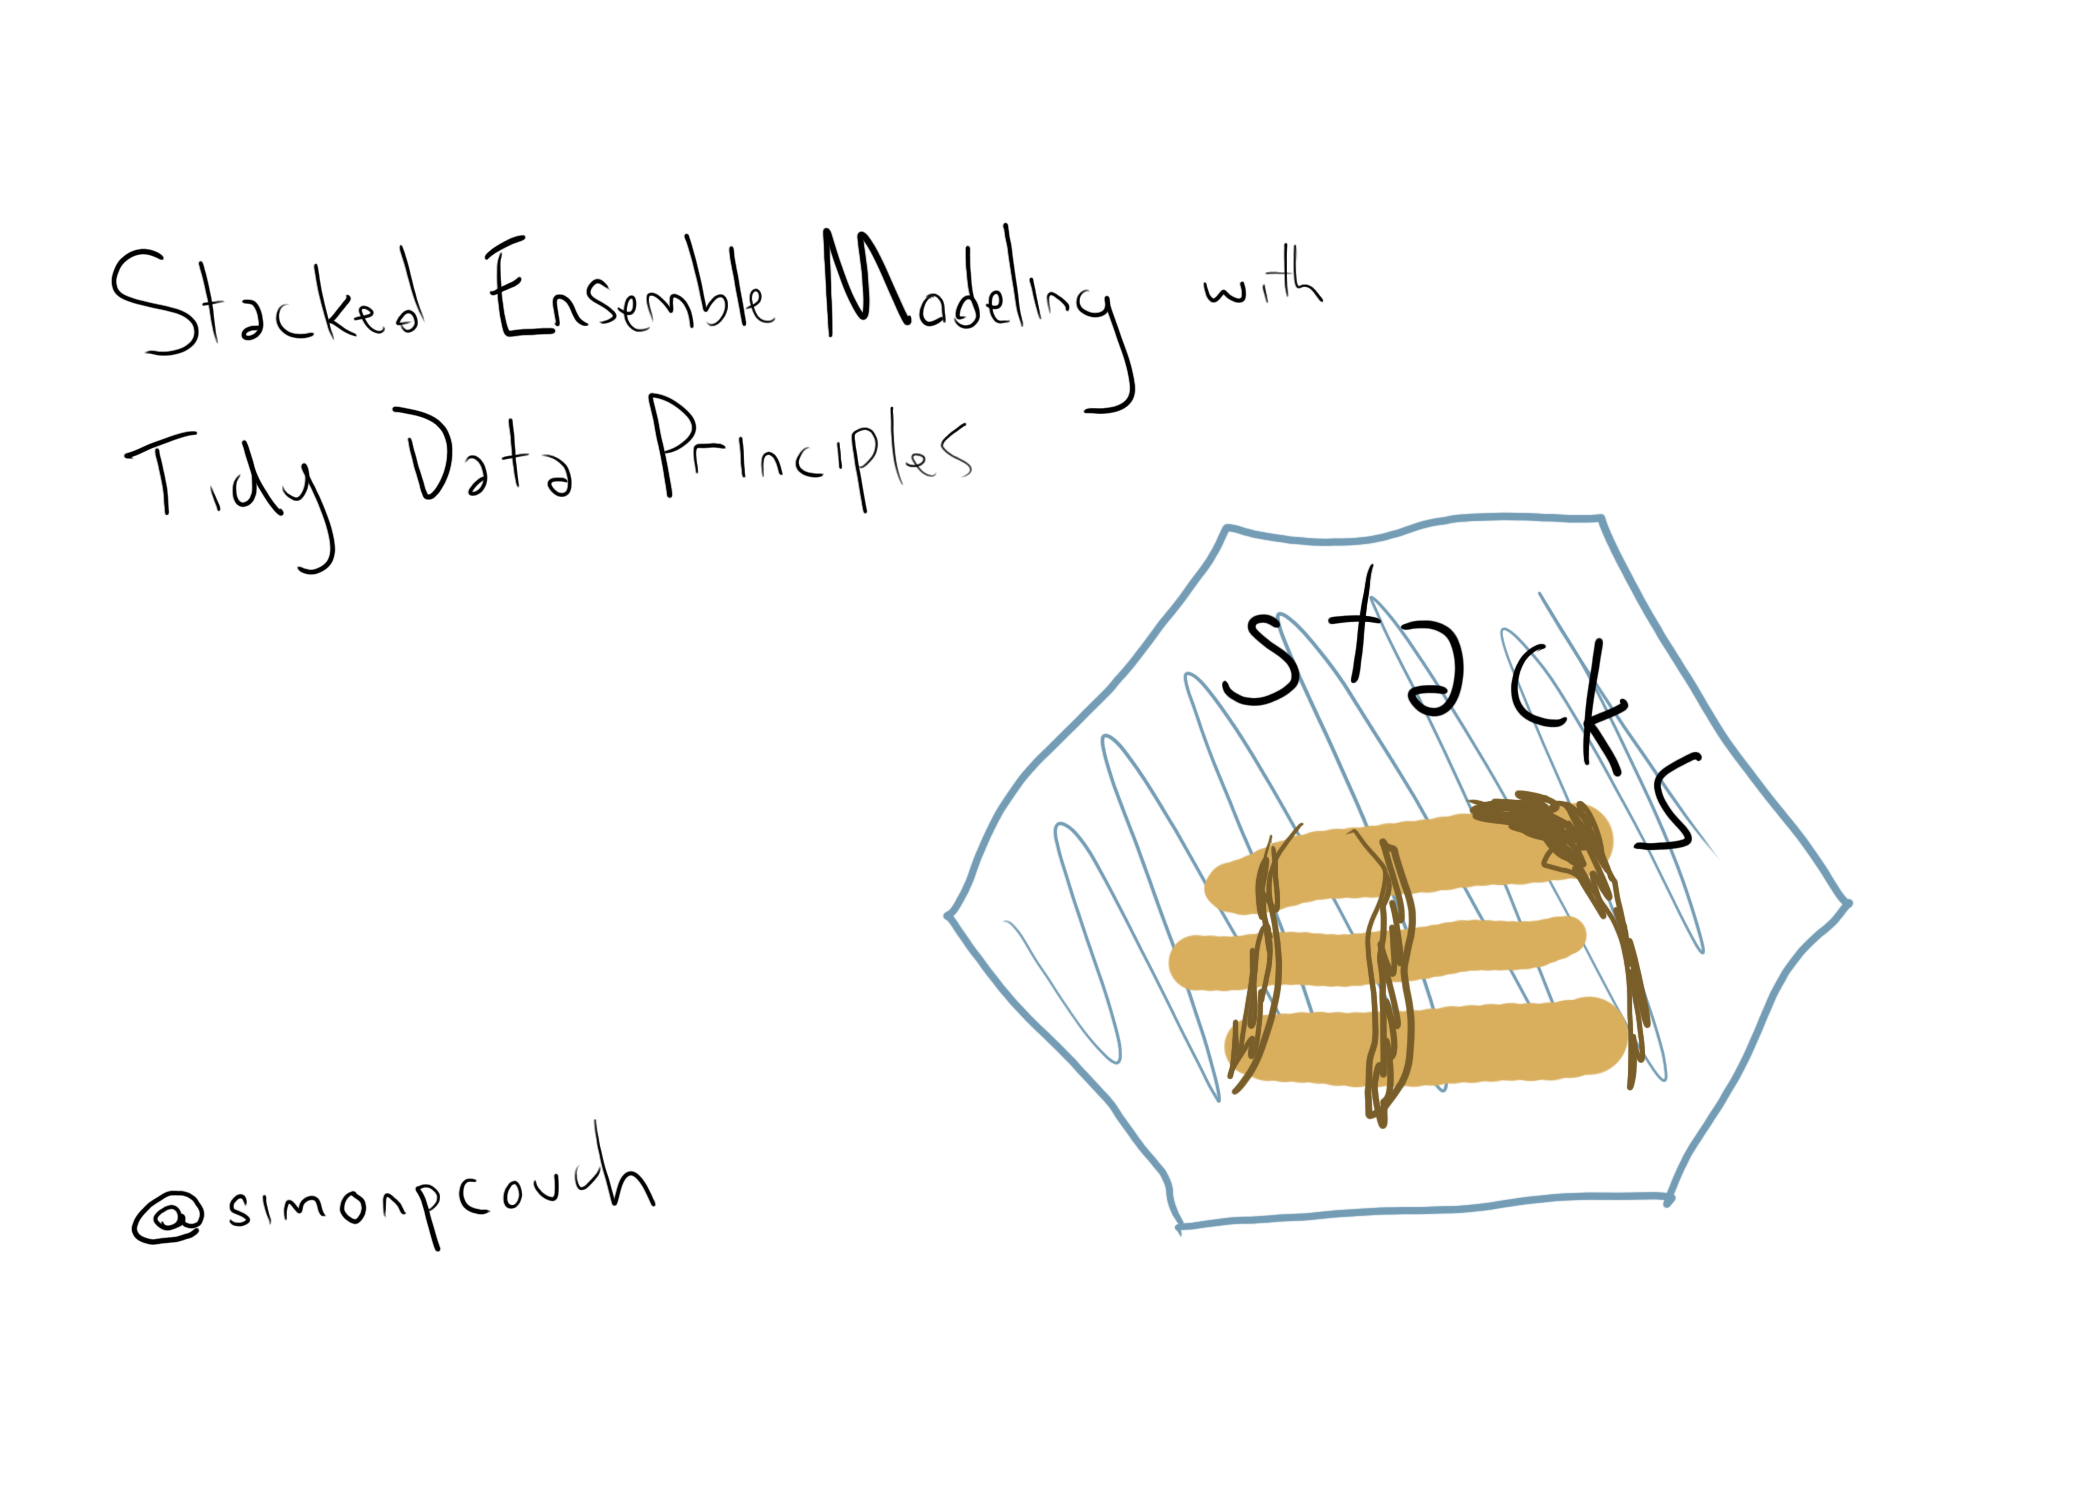 Stacked Ensemble Modeling with
Tidy Data Principles
stacks
@simonpcouch